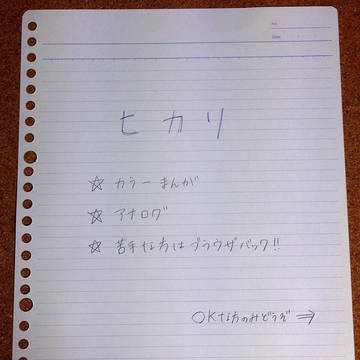 No.
Date
ヒカリ
☆ カラーまんが
☆ アナログ
☆ 苦手な方はブラウザバック!!
OKな方のみどうぞ⇒